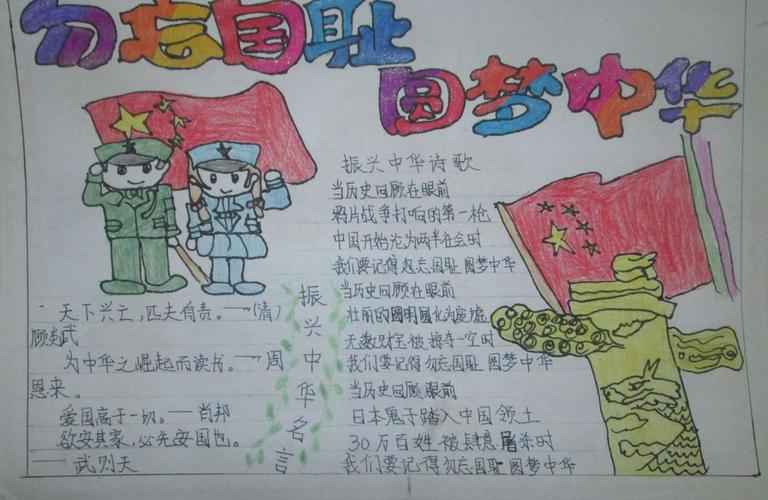 勿忘国耻
圆梦中华
振兴中华诗歌
当历史回顾在眼前
鸦片战争打响的第一枪
中国开始沦为两半社会时
我们要记得勿忘国耻 圆梦中华
当历史回顾在眼前
壮丽的圆明园化为废墟
无数财宝被掠夺一空时
我们要记得勿忘国耻 圆梦中华
当历史回顾眼前
日本鬼子踏入中国领土
30万百姓被肆意屠杀时
我们要记得勿忘国耻 圆梦中华
振兴中华名言
天下兴亡,匹夫有责。——(清)
顾炎武
为中华之崛起而读书。——周
恩来。
爱国高于一切。——肖邦
欲安其家,必先安国也。
——武则天